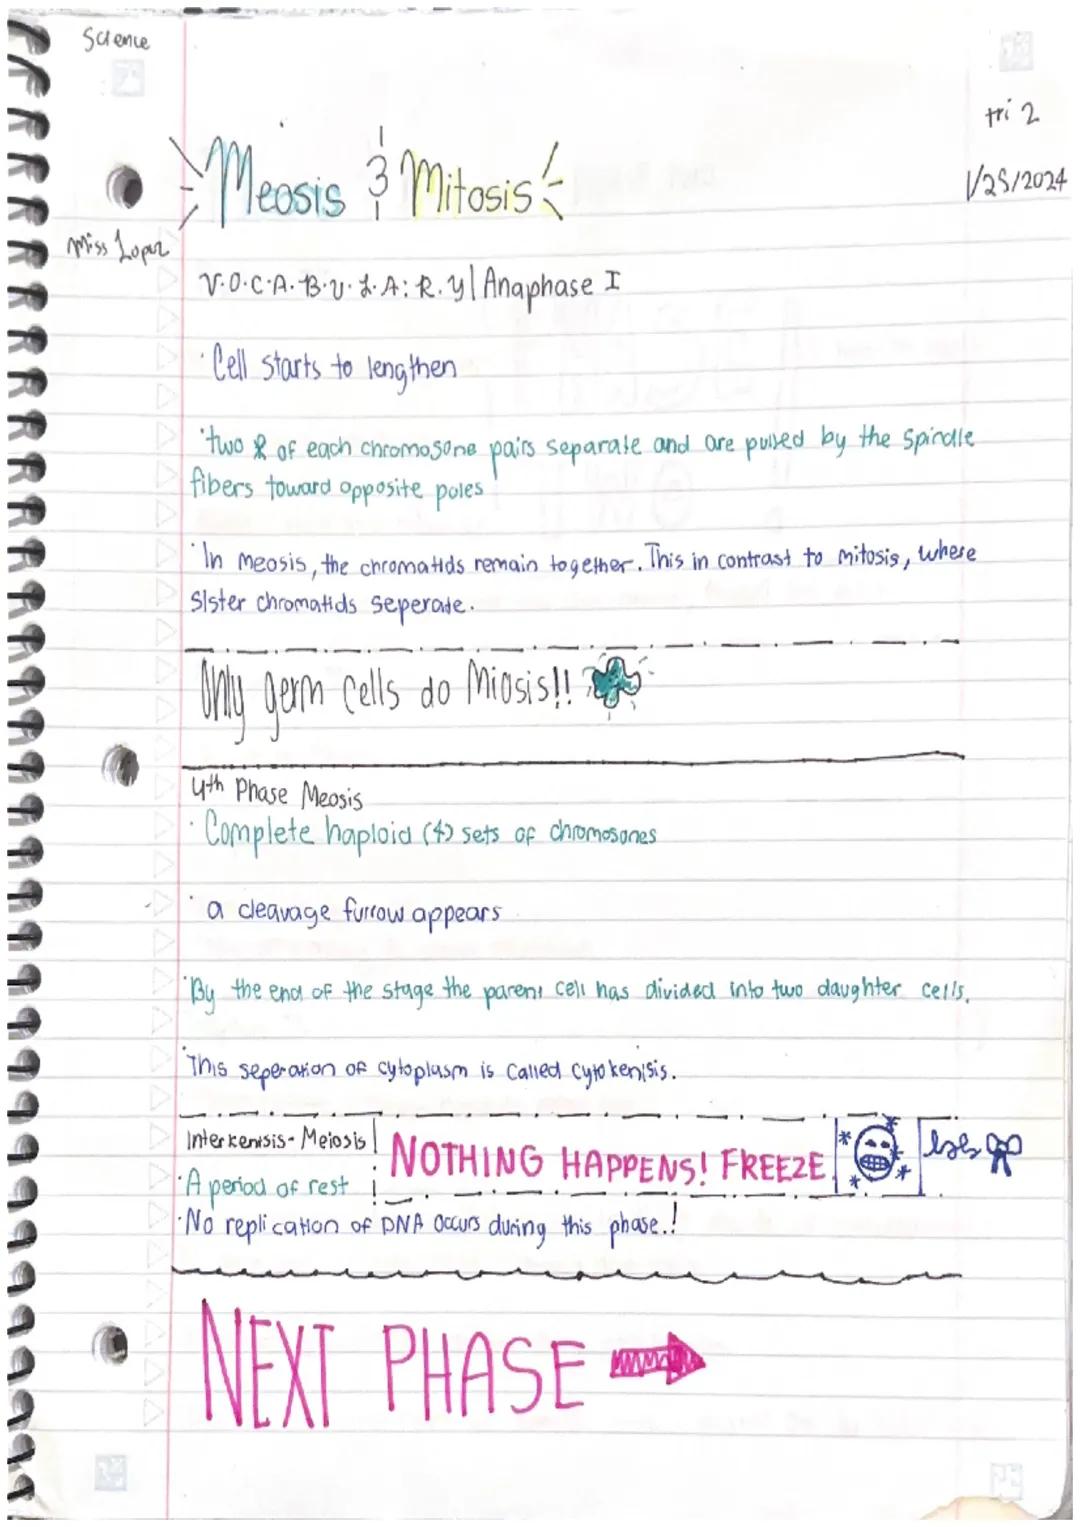 Science
tri 2
Meosis & Mitosis
1/25/2024
Miss Lopez
V.O.C.A.B.U.L.A.R.Y | Anaphase I
· Cell starts to lengthen
· two of each chromosone pairs separate and are pulled by the spindle
fibers toward opposite poles
· In meosis, the chromatids remain together. This in contrast to mitosis, where
sister chromatids seperate.
Only germ cells do Miosis!!
4th Phase Meosis
· Complete haploid (4) sets of chromosones
· a cleavage furrow appears
· By the end of the stage the parent cell has divided into two daughter cells.
· This seperation of cytoplasm is called cytokenisis.
Interkenisis - Meiosis
NOTHING HAPPENS! FREEZE
· A period of rest
· No replication of DNA occurs during this phase.!
NEXT PHASE